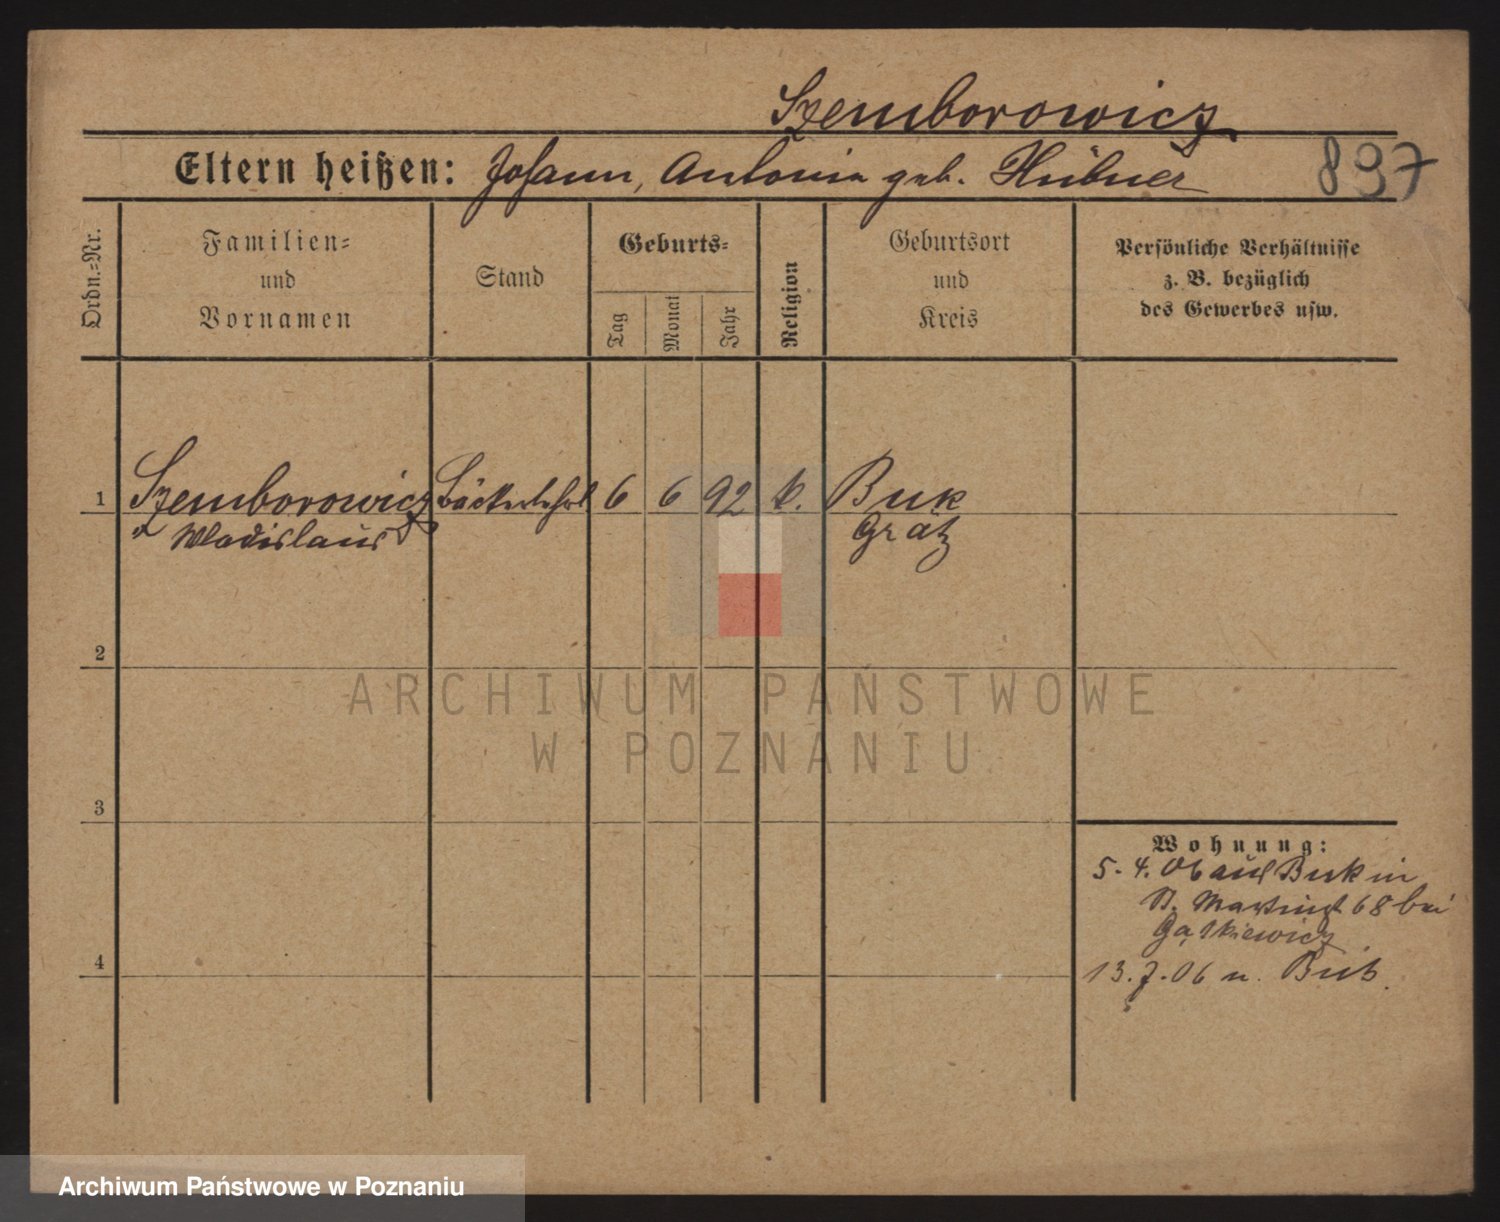 Szemborowicz
Eltern heißen: Johann, Antonia geb. Hübner 897
Ordn.-Nr.
Familien-
und
Vornamen
Stand
Geburts-
Tag
Monat
Jahr
Religion
Geburtsort
und
Kreis
Persönliche Verhältnisse
z. B. bezüglich
des Gewerbes usw.
1 Szemborowicz Bäckerlehrl 6 6 92 k. Buk
Wladislaus Grätz
2
ARCHIWUM PAŃSTWOWE
W POZNANIU
3
Wohnung:
5. 4. 06 aus Buk in
St. Martinst 68 bei
Gąskiewicz
4
13. 7. 06 n. Buk.
Archiwum Państwowe w Poznaniu